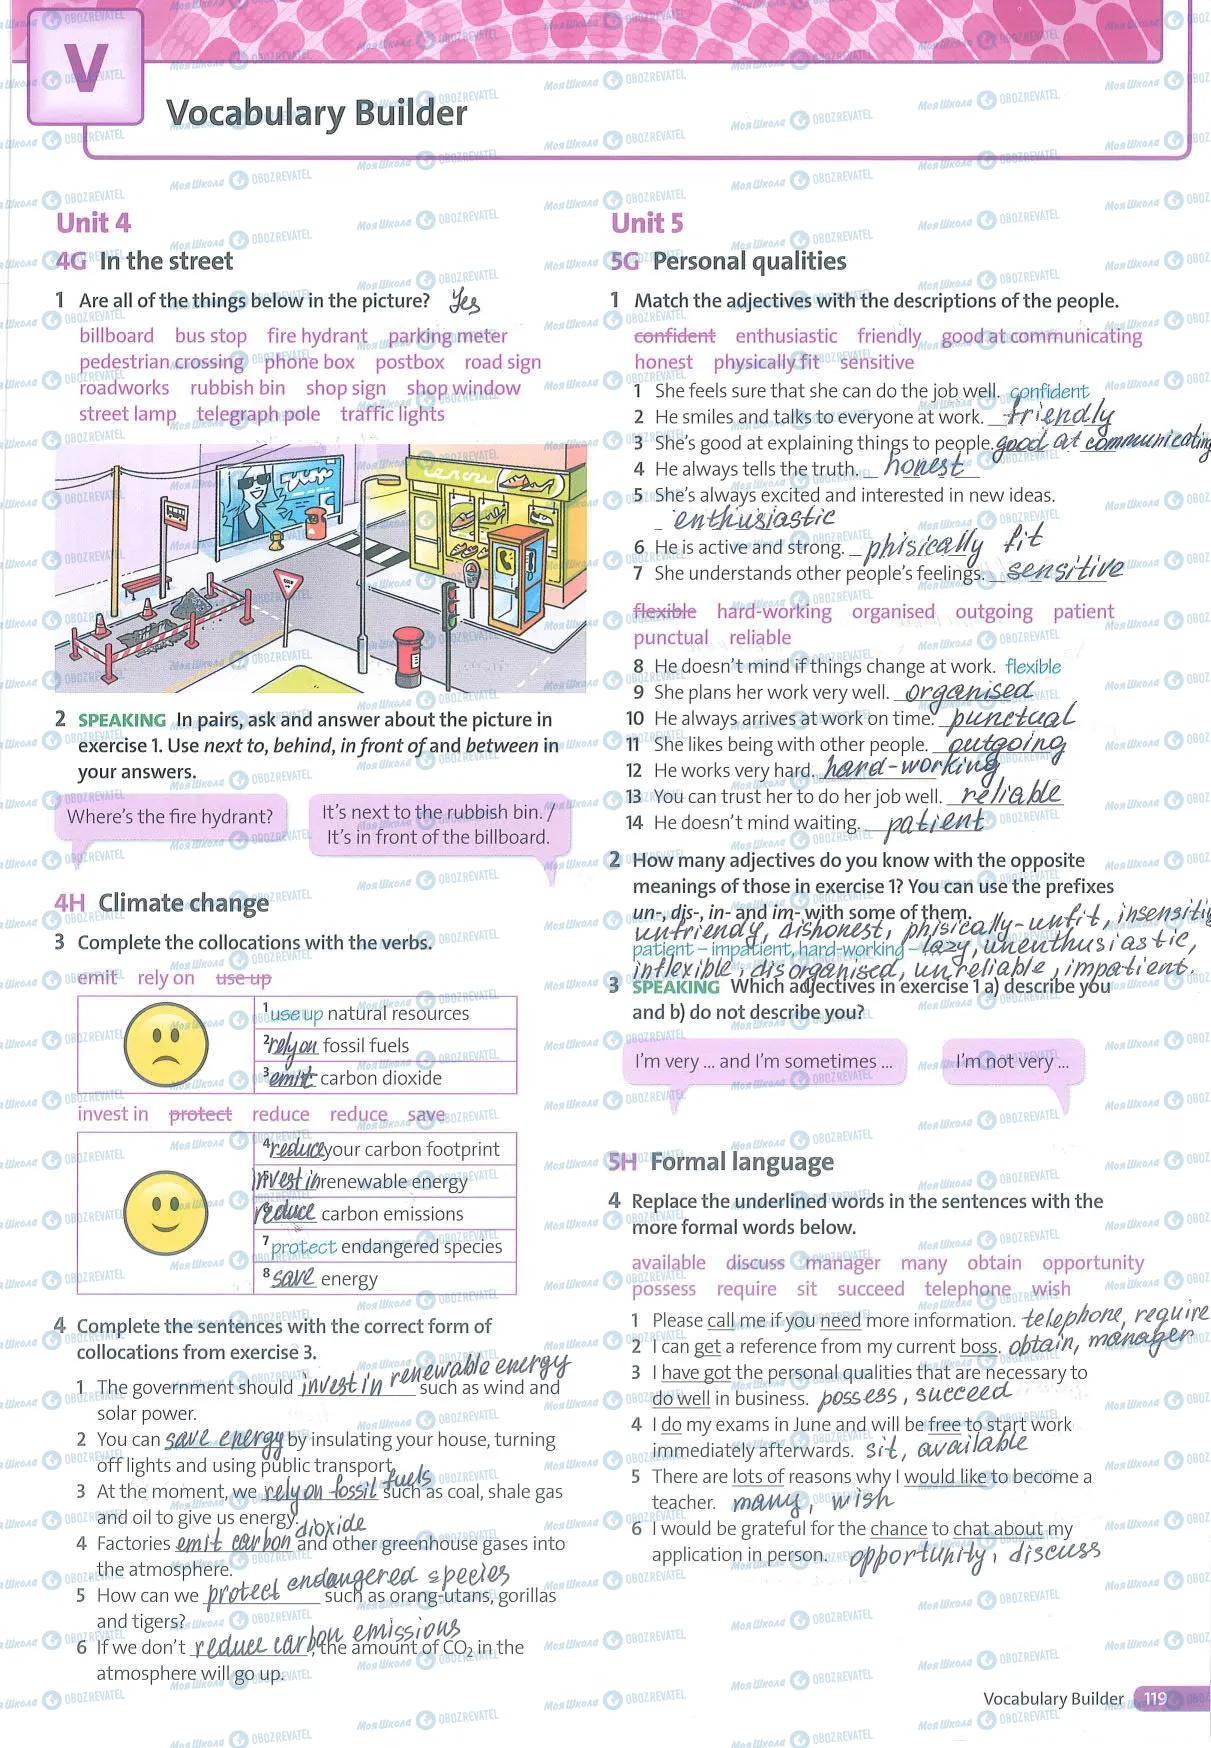 V
Vocabulary Builder
Unit 4
4G In the street
1 Are all of the things below in the picture? Yes
billboard bus stop fire hydrant parking meter
pedestrian crossing phone box postbox road sign
roadworks rubbish bin shop sign shop window
street lamp telegraph pole traffic lights
2 SPEAKING In pairs, ask and answer about the picture in
exercise 1. Use next to, behind, in front of and between in
your answers.
Where's the fire hydrant?
It's next to the rubbish bin. /
It's in front of the billboard.
4H Climate change
3 Complete the collocations with the verbs.
emit rely on use up
1 use up natural resources
2 rely on fossil fuels
3 emit carbon dioxide
invest in protect reduce reduce save
4 reduce your carbon footprint
invest in renewable energy
reduce carbon emissions
7 protect endangered species
8 save energy
4 Complete the sentences with the correct form of
collocations from exercise 3.
1 The government should invest in renewable energy such as wind and
solar power.
2 You can save energy by insulating your house, turning
off lights and using public transport.
3 At the moment, we rely on fossil fuels such as coal, shale gas
and oil to give us energy.
4 Factories emit carbon dioxide and other greenhouse gases into
the atmosphere.
5 How can we protect endangered species such as orang-utans, gorillas
and tigers?
6 If we don't reduce carbon emissions, the amount of CO2 in the
atmosphere will go up.
Unit 5
5G Personal qualities
1 Match the adjectives with the descriptions of the people.
confident enthusiastic friendly good at communicating
honest physically fit sensitive
1 She feels sure that she can do the job well. confident
2 He smiles and talks to everyone at work. friendly
3 She's good at explaining things to people. good at communicating
4 He always tells the truth. honest
5 She's always excited and interested in new ideas.
enthusiastic
6 He is active and strong. phisically fit
7 She understands other people's feelings. sensitive
flexible hard-working organised outgoing patient
punctual reliable
8 He doesn't mind if things change at work. flexible
9 She plans her work very well. organised
10 He always arrives at work on time. punctual
11 She likes being with other people. outgoing
12 He works very hard. hard-working
13 You can trust her to do her job well. reliable
14 He doesn't mind waiting. patient
2 How many adjectives do you know with the opposite
meanings of those in exercise 1? You can use the prefixes
un-, dis-, in- and im- with some of them.
unfriendy, dishonest, phisically-unfit, insensitiv
patient – impatient, hard-working – lazy, unenthusiastic,
inflexible, disorganised, unreliable, impatient.
3 SPEAKING Which adjectives in exercise 1 a) describe you
and b) do not describe you?
I'm very ... and I'm sometimes ...
I'm not very ...
5H Formal language
4 Replace the underlined words in the sentences with the
more formal words below.
available discuss manager many obtain opportunity
possess require sit succeed telephone wish
1 Please call me if you need more information. telephone, require
2 I can get a reference from my current boss. obtain, manager
3 I have got the personal qualities that are necessary to
do well in business. possess, succeed
4 I do my exams in June and will be free to start work
immediately afterwards. sit, available
5 There are lots of reasons why I would like to become a
teacher. many, wish
6 I would be grateful for the chance to chat about my
application in person. opportunity, discuss
Vocabulary Builder 119
Моя Школа OBOZREVATEL